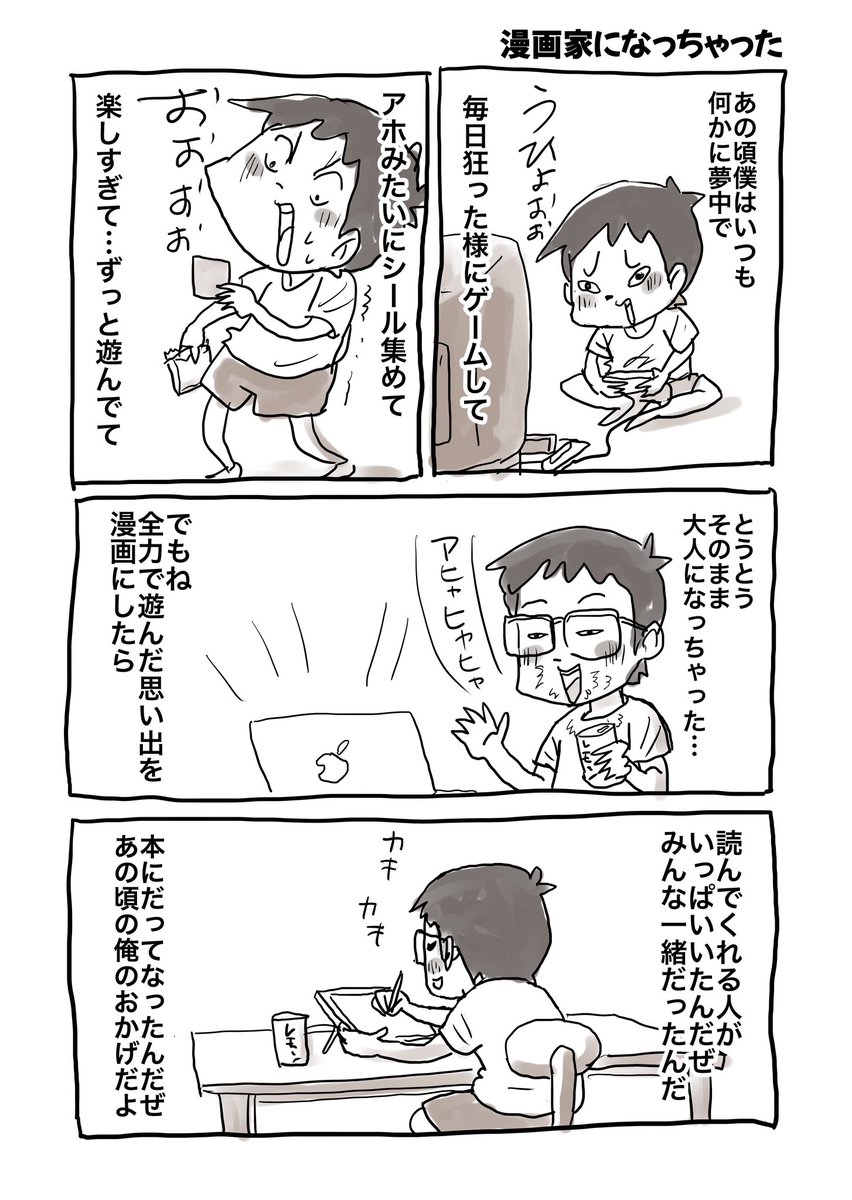 漫画家になっちゃった
あの頃僕はいつも
何かに夢中で
うひょおぉ
毎日狂った様にゲームして
アホみたいにシール集めて
おおぉぉ
楽しすぎて…ずっと遊んでて
とうとう
そのまま
大人になっちゃった…
アヒャヒャヒャ
でもね
全力で遊んだ思い出を
漫画にしたら
読んでくれる人が
いっぱいいたんだぜ
みんな一緒だったんだ
カキ
カキ
レモン
本にだってなったんだぜ
あの頃の俺のおかげだよ